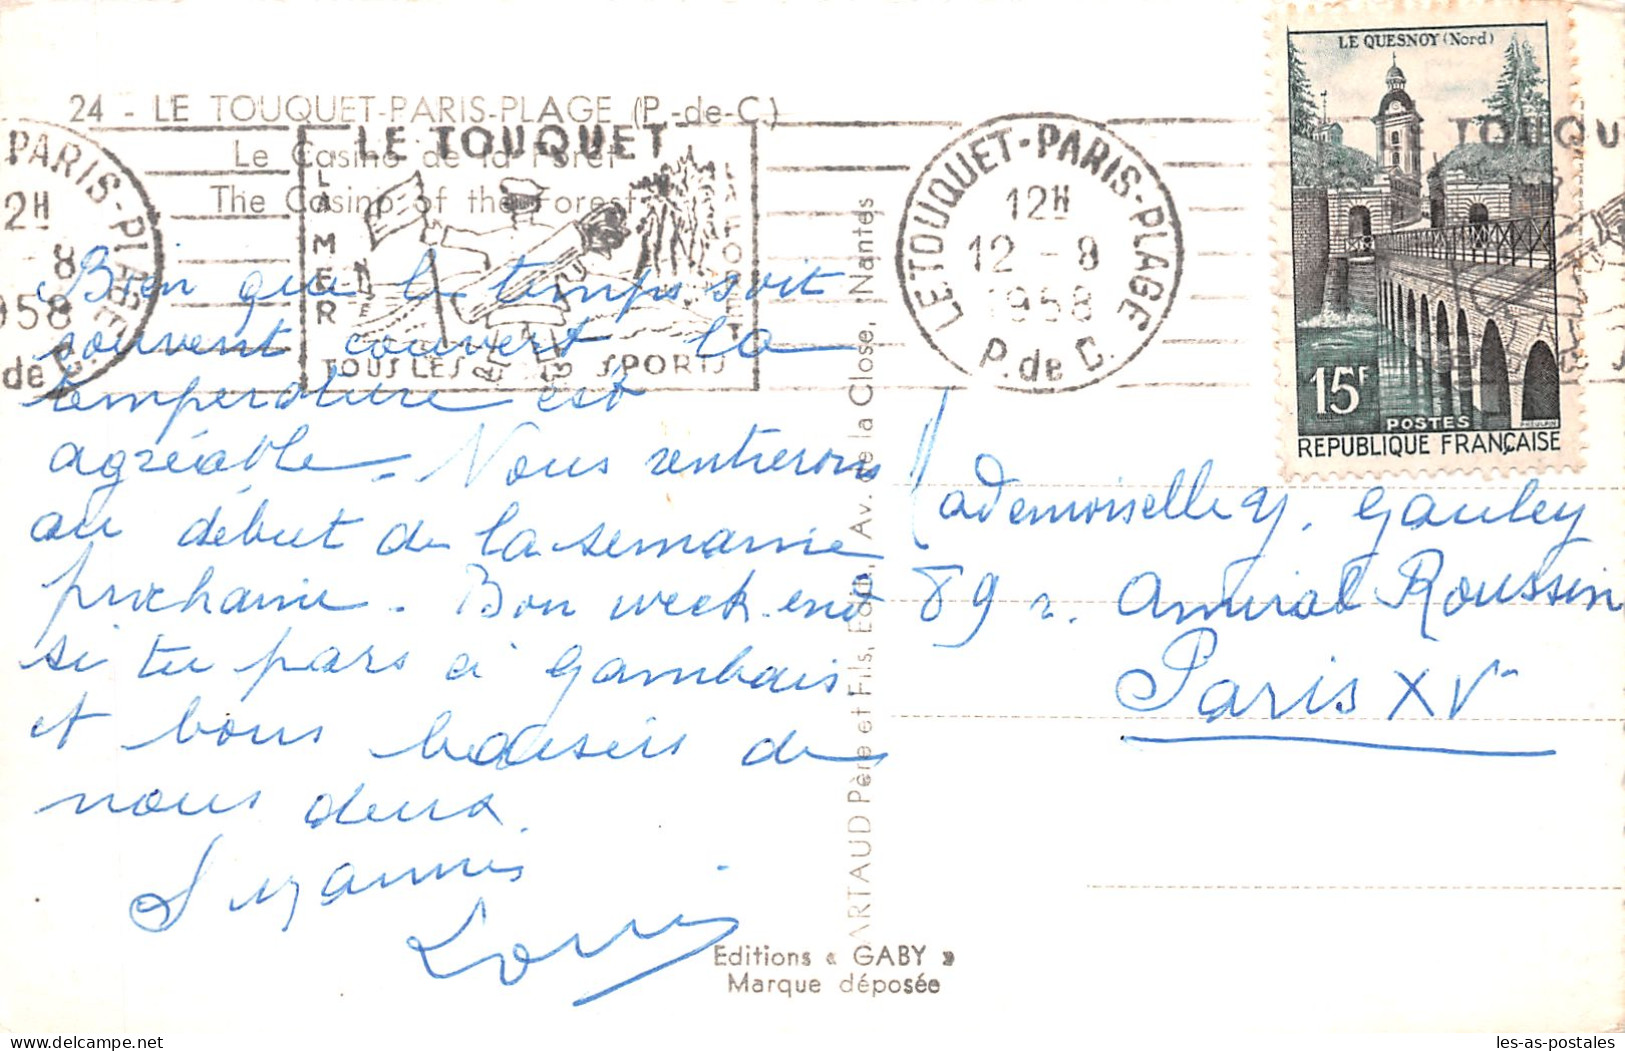 24 - LE TOUQUET-PARIS-PLAGE (P.-de-C.)
Le Casino de la Forêt
The Casino of the Forest
PARIS-PLAGE
12H
8
1958
P. de C.
LE TOUQUET
LA MER
LA FORET
TOUS LES SPORTS
LE TOUQUET-PARIS-PLAGE
12H
12 - 8
1958
P. de C.
LE TOUQU
LE QUESNOY (Nord)
15F
POSTES
REPUBLIQUE FRANÇAISE
Bien que le temps soit
souvent couvert la
température est
agréable. Nous rentrerons
au début de la semaine
prochaine. Bon week-end
si tu pars à Gambais
et bons baisers de
nous deux.
Suzanne
Louis
Mademoiselle Y. Gauley
89 r. Amiral Roussin
Paris XVe
ARTAUD Père et Fils, Edit., Av. de la Close, Nantes
Editions « GABY »
Marque déposée
les-as-postales